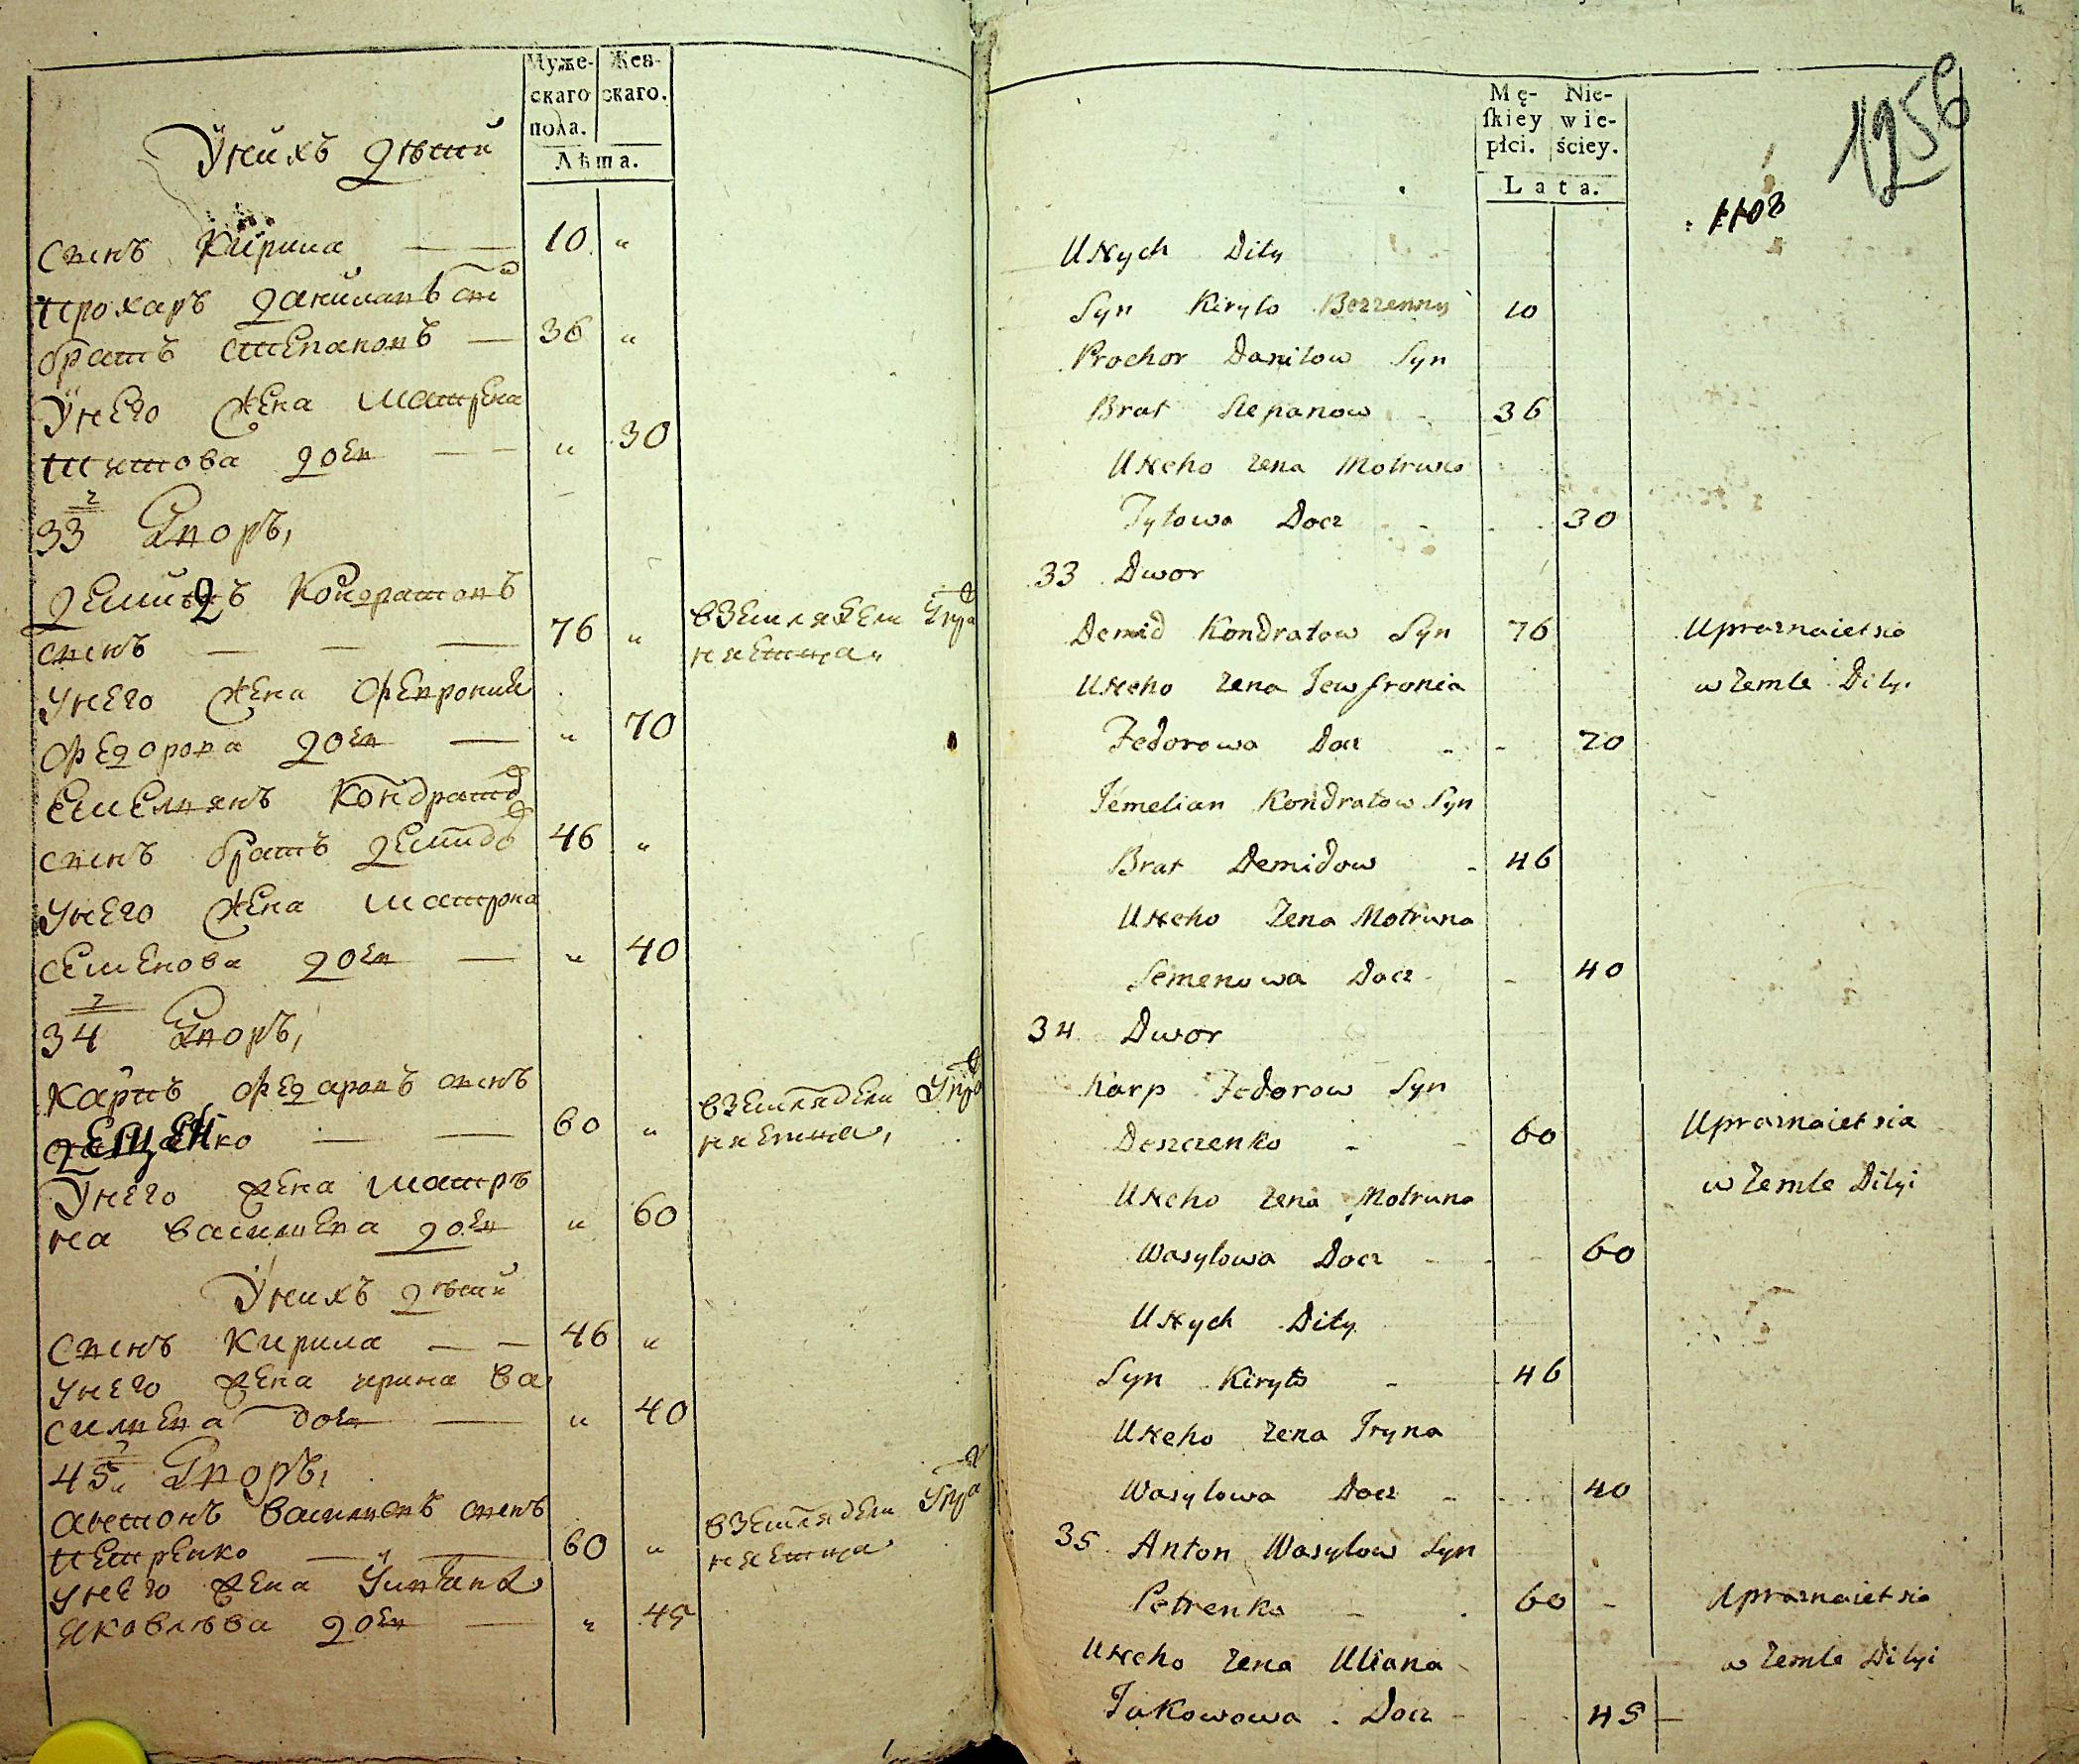 Муже-
скаго
пола.
Жен-
скаго.
Лѣта.
Унихъ дѣти
сынъ Кирила — — 10 "
прохаръ даниловъ сы
братъ степановъ — 36 "
Унего жена матрена
титова дочь — — " 30
33 Дворъ,
демидъ Кондратовъ
сынъ — — — 76 "
вземледели упра
няетца
Унего жена феврония
федорова дочь — " 70
Емельянъ Кондрато
сынъ братъ демидо 46 "
Унего жена матрона
семенова дочь — " 40
34 Дворъ,
Карпъ федаровъ сынъ
дещенко — — 60 "
вземледели упра
няетца,
Унего жена матро
на васильева дочь " 60
Унихъ дѣти
сынъ Кирила — — 46 "
Унего жена ирина ва
сильева дочь — " 40
45 Дворъ,
антонъ васильевъ сынъ
петренко — — 60 "
вземледели упра
няетца
Унего жена Ульяна
яковлѣва дочь — " 45
Mę-
skiey
płci.
Nie-
wie-
ściey.
Lata.
1256
Unych Dity
Syn Kiryło Bezzennyi 10
Prochor Daniłow Syn
Brat Stepanow - 36
Uneho zena Motruna
Tytowa Docz - - 30
33 Dwor
Demid Kondratow Syn 76
Upraznaietsia
w Zemle Dilyi
Uneho zena Jewfronia
Fedorowa Docz - - 70
Jemelian Kondratow Syn
Brat Demidow - 46
Uneho Zena Motruna
Semenowa Docz - 40
34 Dwor
Karp Fedorow Syn
Deszczenko - - 60
Upraznaietsia
w Zemle Dilyi
Uneho zena Motruna
Wasylowa Docz - - 60
Unych Dity
Syn Kiryło - 46
Uneho zena Iryna
Wasylowa Docz - 40
35 Anton Wasylow Syn
Petrenko - 60 -
Upraznaietsia
w Zemle Dilyi
Uneho zena Uliana
Jakowowa Docz - 45 —